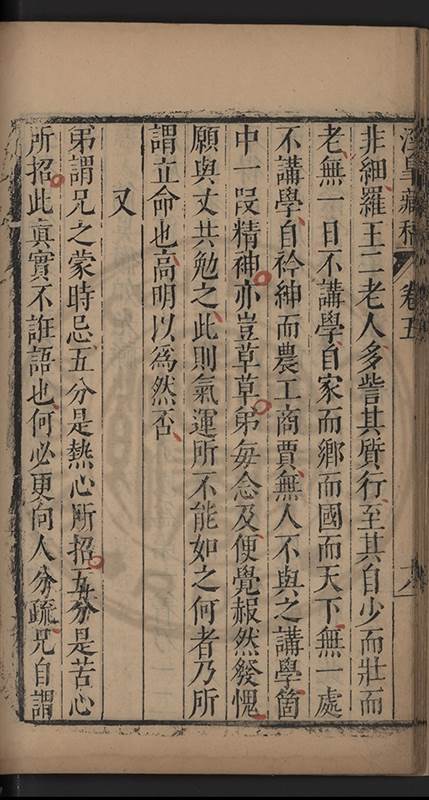 涇臯藏稿 卷五 八
非細羅王二老人多訾其質行至其自少而壯而
老無一日不講學自家而鄉而國而天下無一處
不講學自衿紳而農工商賈無人不與之講學箇
中一段精神亦豈草草弟每念及便覺赧然發愧
願與丈共勉之此則氣運所不能如之何者乃所
謂立命也高明以為然否
又
弟謂兄之蒙時忌五分是熱心所招五分是苦心
所招此真實不誑語也何必更向人分疏兄自謂